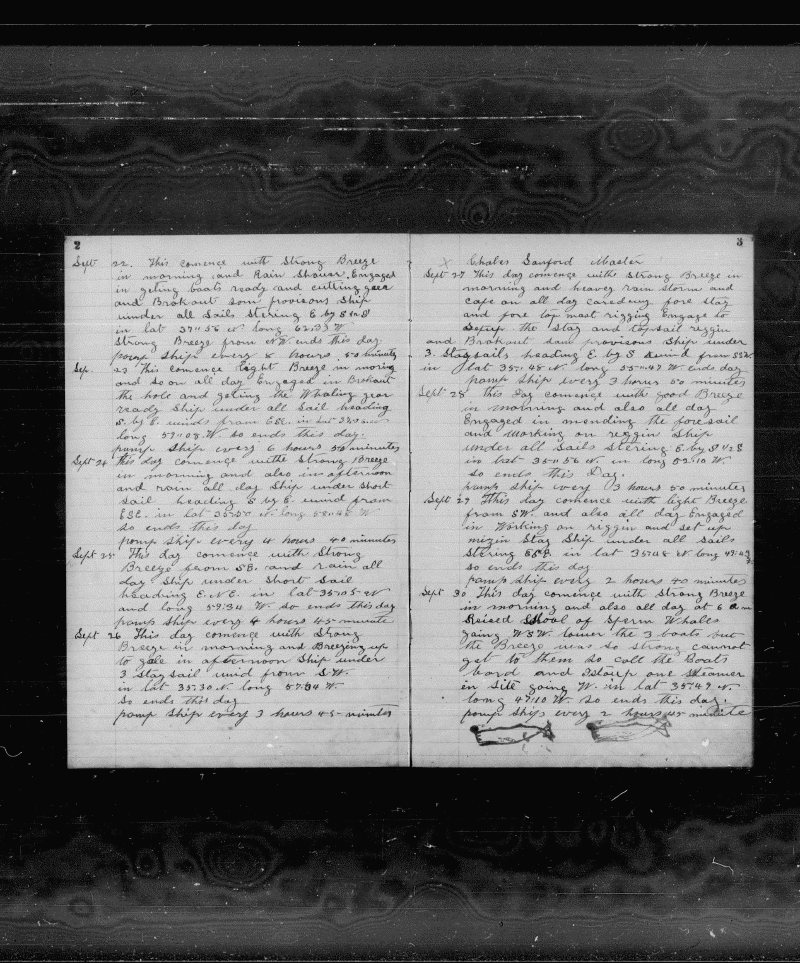 2
Sept 22. This comence with Strong Breeze
in morning and Rain Shower. Engaged
in geting boats ready and cutting gear
and Brokout som provisons Ship
under all Sails Stering E by S
in lat 37=56 N long 62=33 W
Strong Breeze from N.W. ends this day
pomp Ship every 8 hours 50 minutes
Sep. 23 This comence light Breeze in moring
and so on all day Engaged in Brokout
the hole and geting the Whaling gear
ready Ship under all Sail heading
S. by E. winds from ESE. in Lat
long 59=08 W so ends this day.
pomp Ship every 6 hours 50 minutes
Sept 24 This day comence withe Strong Breeze
in morning and also in afternoon
and rain all day Ship under Short
Sail heading S by E. wind from
ESE. in Lat 35=50 N long 58=48 W
so ends this day
pomp Ship every 4 hours 40 minutes
Sept 25 This day comence with Strong
Breeze from SE. and rain all
day Ship under Short Sail
heading E.N.E. in lat 35=05 N
and long 59=34 W. so ends this day
pomp Ship every 4 hours 45 minute
Sept 26 This day comence with Strong
Breeze in morning and Breezing up
to gale in afternoon Ship under
3 Staysail wind from S.W.
in lat 35=30 N long 57=04 W
So ends this day
pomp Ship every 3 hours 45 minutes
3
Chales Sanford Master
Sept 27 This day comence withe Strong Breeze in
morning and heavey rain storm and
cape on all day caredaway fore stay
and fore top mast rigging Engage to
Setup the Stay and topsail reggin
and Brokout som provisons Ship under
3. Staysails heading E. by S wind from SSW.
in lat 35=48 N long 55=47 W ends day
pomp Ship every 3 hours 50 minutes
Sept 28 this Day comence with good Breeze
in morning and also all day
Engaged in mending the foresail
and Working on reggin Ship
under all Sails Stering E. by S
in lat 35=56 N. in long 52=10 W.
so ends this Day.
pomp Ship every 3 hours 50 minutes
Sept 29 This day comence with light Breeze
from SW. and also all day Engaged
in Working on riggin and set up
mizin Stay Ship under all Sails
Stering ESE. in lat 35=48 N long
so ends this day
pomp Ship every 2 hours 40 minutes
Sept 30 This day comence with Strong Breeze
in morning and also all day at 6 a m
Reised Shool of Sperm Whales
going WSW. lower the 3 boats but
the Breeze was so strong cannot
get to them so call the Boats
bord and one Steamer
in Site going W. in lat 35=49 N
long 47=10 W. So ends this day.
pomp Ship every 2 hours 45 minute